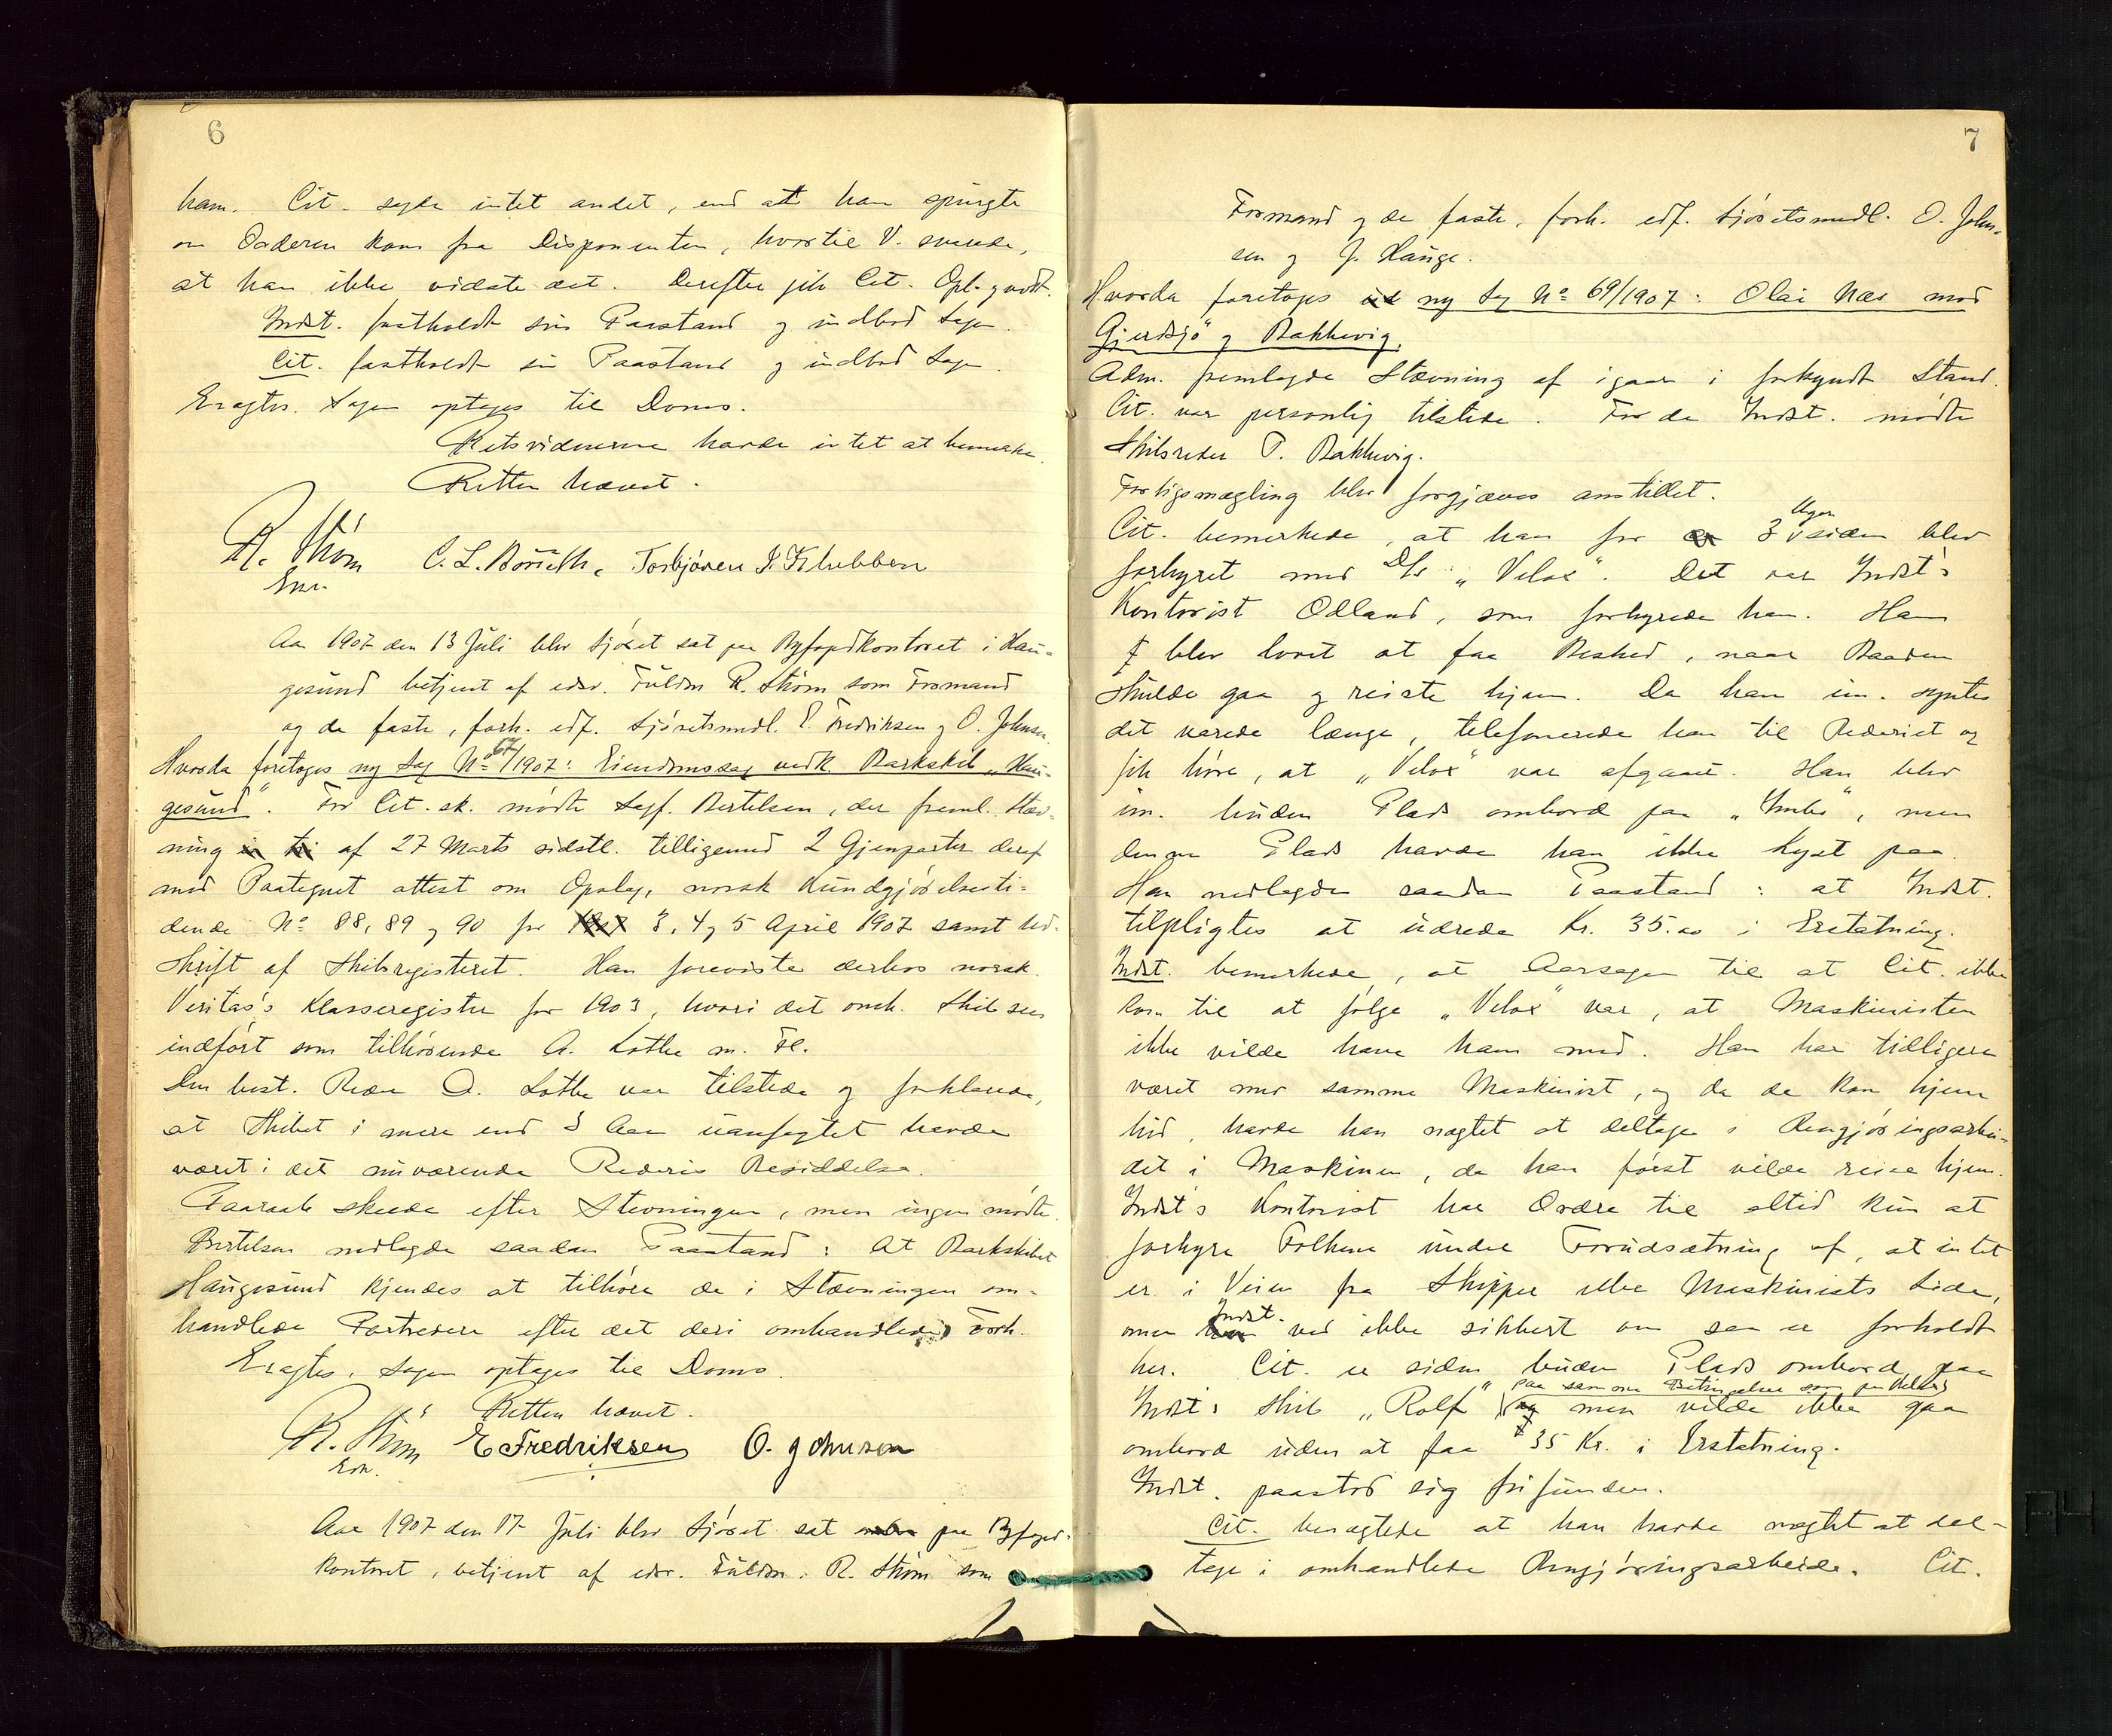 6
ham. Cit. sagde intet andet, end att han spurgte
om Orderen kom fra Disponenten, hvortil V. svarede,
at han ikke vidste det. Derefter gik Cit. Opl. og vedt.
Indst. fastholdt sin Paastand og indlod Sagen.
Cit. fastholdt sin Paastand og indlod Sagen.
Eragtes. Sagen optages til Doms.
Retsvidnerne havde intet at bemerke.
Retten hævet.
R. Strøm C. L. Torbjørn J. Klubben
Edsv.
Aar 1907 den 13 Juli blev Sjøret sat paa Byfogdkontoret i Hau-
gesund betjent af edsv. Fuldm R. Strøm som Formand
og de faste, forh. edf. Sjøretsmedl. E. Fredriksen og O. Johnsen.
Hvorda foretoges ny Sag No 67/1907: Eiendomssag vedk. Barkskib „Hau-
gesund". For Cit. sk. mødte Sagf. Bertelsen, der freml. Stæv-
ning af 27 Marts sidstl. tilligemed 2 Gjenparter deraf
med Paategnet attest om Opslag, norsk Kundgjørelsesti-
dende No 88, 89 og 90 for 3, 4 og 5 April 1907 samt Ud-
skrift af Skibsregisteret. Han foreviste derhos norsk
Veritas's Klasseregister for 1903, hvori det omh. Skib sees
indført som tilhørende A. Lothe m. Fl.
Den best. Reder O. Lothe var tilstede og forklarede,
at Skibet i mere end 3 Aar uanfegtet havde
været i det nuværende Rederis Besiddelse.
Paaraab skeede efter Stevningen, men ingen mødte.
Bertelsen nedlagde saadan Paastand: At Barkskibet
Haugesund kjendes at tilhøre de i Stævningen om-
handlede Partredere efter det deri omhandlede Forh.
Eragtes. Sagen optages til Doms.
Retten hævet.
R. Strøm E Fredriksen O. Johnsen
Edsv.
Aar 1907 den 17 Juli blev Sjøret sat paa Byfogd-
kontoret, betjent af edsv. Fuldm. R. Strøm som
7
Formand og de faste, forh. edf. Sjøretsmedl. O. John-
sen og J. Hauge.
Hvorda foretoges ny Sag No 69/1907: Olai Næs mod
Gjerdsjø og Bakkevig.
Adm. fremlagde Stævning af igaar i forkyndt Stand.
Cit. var personlig tilstede. For de Indst. mødte
Skibsreder P. Bakkevig.
Forligsmægling blev forgjæves anstillet.
Cit. bemerkede, at han for 3 Uger siden blev
forhyret med D/S „Velox". Det var Indst's
Kontorist Odland, som forhyrede ham. Han
blev lovet at faa Besked, naar Baaden
skulde gaa og reiste hjem. Da han im. syntes
det varede længe, telefonerede han til Rederiet og
fik høre, at „Velox" var afgaaet. Han blev
im. buden Plads ombord paa „Ymbs", men
denne Plads havde han ikke Lyst paa.
Han nedlagde saadan Paastand: at Indst.
tilpligtes at udrede Kr. 35.00 i Erstatning.
Indst. bemerkede, at Aarsagen til at Cit. ikke
kom til at følge „Velox" var, at Maskinisten
ikke vilde have ham med. Han har tidligere
været med samme Maskinist, og da de kom hjem
hid, havde han nægtet at deltage i Rengjøringsarbei-
det i Maskinen, da han først vilde reise hjem.
Indst's Kontorist har Ordre til altid kun at
forhyre Folkene under Forudsætning af, at intet
er i Veien fra Skipper eller Maskinists Side,
men Indst. ved ikke sikkert om saa er forholdt
her. Cit. er siden buden Plads ombord paa
Indst's Skib „Rolf" paa samme Betingelser som paa Velox men vilde ikke gaa
ombord uden at faa 35 Kr. i Erstatning.
Indst. paastod sig frifunden.
Cit. benegtede at han havde nægtet at del-
tage i omhandlede Rengjøringsarbeide. Cit.